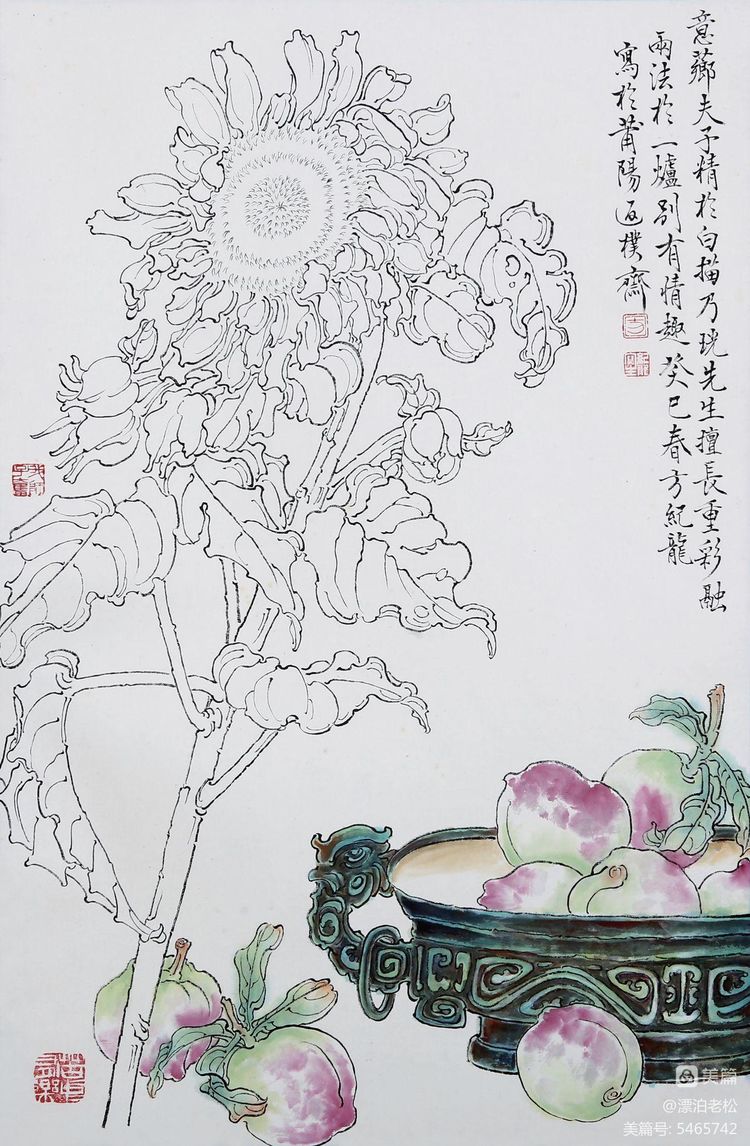 意薌夫子精於白描乃珖先生擅長重彩融
兩法於一爐別有情趣癸巳春方紀龍
寫於莆陽返樸齋
美篇
@漂泊老松
美篇号: 5465742